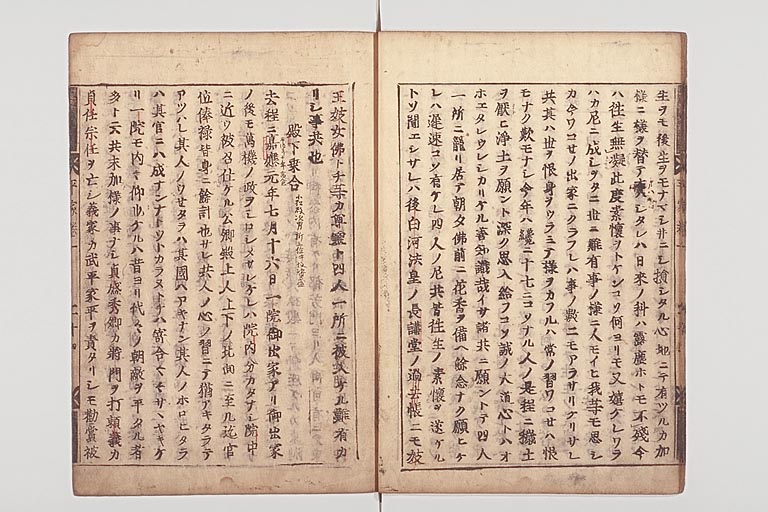 生ヲモ後生ヲモナマシ井ニシ損シタル心地ニテ有ツルカ加
様ニ様ヲ替テ来シタレハ日来ノ科ハ露塵ホトモ不残今
ハ往生無疑此度素懐ヲトケンコソ何ヨリモ又嬉ケレワラ
ハカ尼ニ成シヲタニ世ニ難有事ノ様ニ人モイヒ我等モ思シ
カ今ワコセノ出家ニクラフレハ事ノ数ニモアラサリケリサレ
共其ハ世ヲ恨身ヲウラミテ様ヲカフルハ常ノ習ワコセハ恨
モナク歎モナシ今年ハ纔ニ十七ニコソナル人ノ是程ニ穢土
ヲ厭ヒ淨土ヲ願ント深ク思入給フコソ誠ノ大道心トハオ
ホエタレウレシカリケル善知識哉イサ諸共ニ願ントテ四人
一所ニ籠リ居テ朝夕佛前ニ花香ヲ備ヘ餘念ナク願ヒケ
レハ遅速コソ有ケレ四人ノ尼共皆往生ノ素懐ヲ遂ケル
トソ聞エシサレハ後白河法皇ノ長講堂ノ過去帳ニモ妓
王妓女佛トチ等カ尊霊ト四人一所ニ被入ケル難有カ
リシ事共也
殿下乗合
去程ニ嘉應元年七月十六日一院御出家アリ御出家
ノ後モ萬機ノ政ヲシロシメサレケレハ院内分カタナシ院中
ニ近ク被召仕ケル公卿殿上人上下ノ北面ニ至ルマテ官
位俸禄皆身ニ餘計也サレ共人ノ心ノ習ニテ猶アキタラテ
アツハレ其人ノウセタラハ其國ハアキナン其人ノホロヒタラ
ハ其官ニハ成ナンナト
リ一院モ内々仰也ケルハ昔ヨリ代々ノ朝敵ヲ平タル者
多ト云共未加様ノ事ナシ貞盛秀郷カ将門ヲ打頼義カ
貞任宗任ヲ亡シ義家カ武平家平ヲ責タリシモ勸賞被
平家巻一
二十四